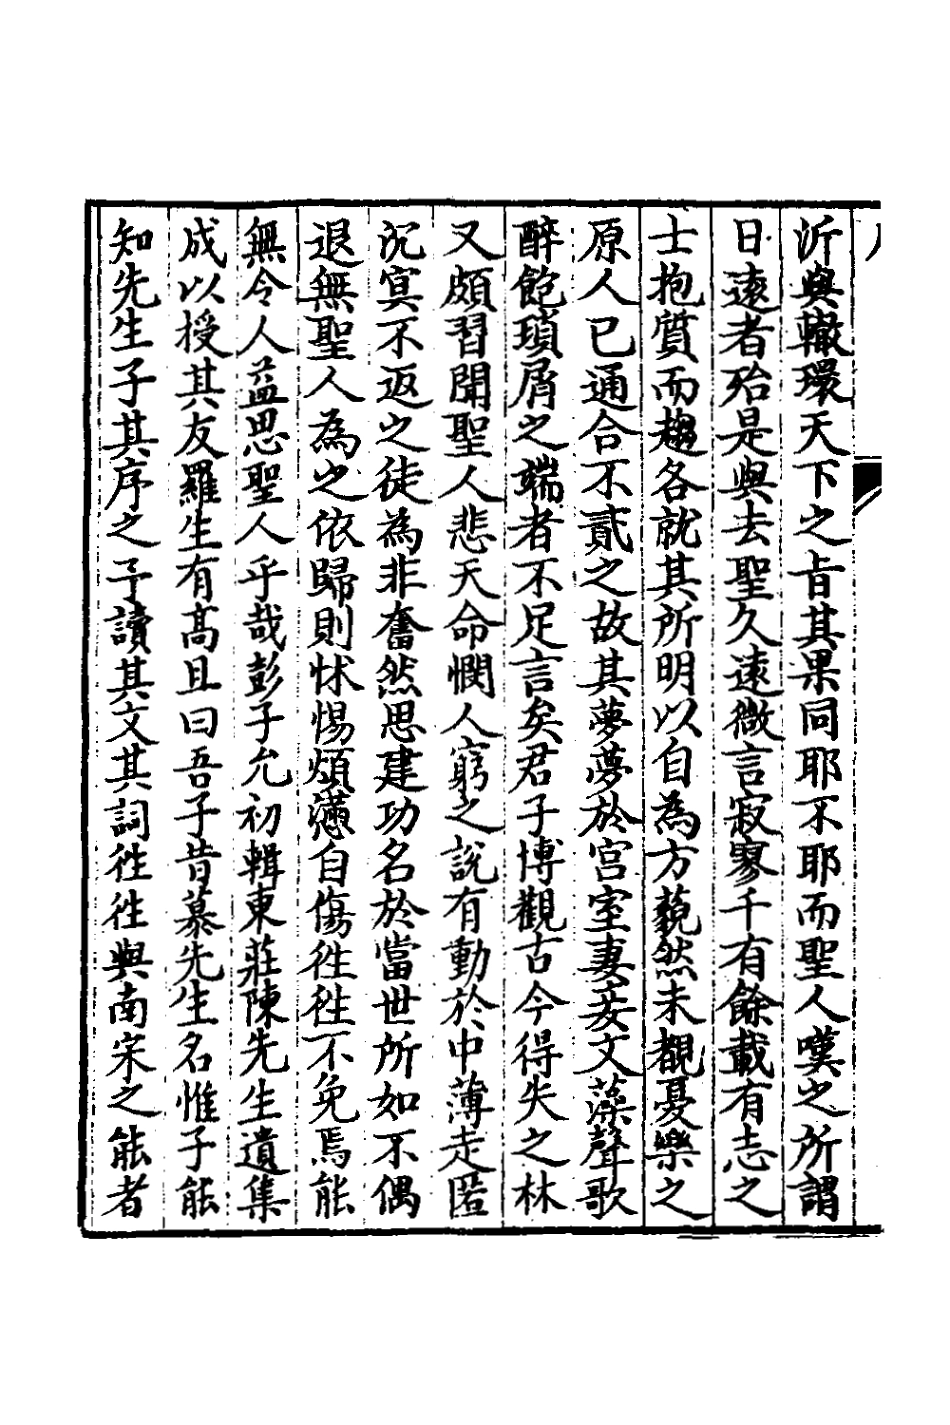 沂與轍環天下之㫖其果同耶不耶而聖人嘆之所謂
日遠者殆是與去聖久遠微言寂寥千有餘載有志之
士抱質而趨各就其所明以自為方藐然未覩憂樂之
原人已通合不貳之故其夢夢於宫室妻妾文藻聲歌
醉飽瑣屑之端者不足言矣君子博觀古今得失之林
又頗習聞聖人悲天命憫人窮之說有動於中薄走匿
沉冥不返之徒為非奮然思建功名於當世所如不偶
退無聖人為之依歸則怵惕煩懣自傷徃徃不免焉能
無令人益思聖人乎哉彭子允初輯東莊陳先生遺集
成以授其友羅生有高且曰吾子昔慕先生名惟子能
知先生子其序之予讀其文其詞徃徃與南宋之能者